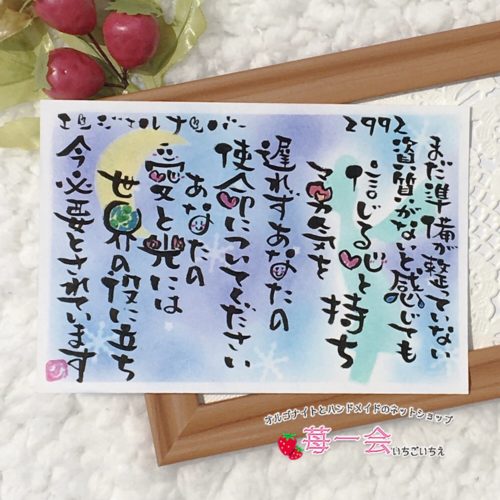 エンジェルナンバー
2992
まだ準備が整っていない
資質がないと感じても
信じる心と持ち
勇気を
遅れずあなたの
使命についてください
あなたの
愛と光には
世界の役に立ち
今必要とされています
オルゴナイトとハンドメイドのネットショップ
苺一会
いちごいちえ